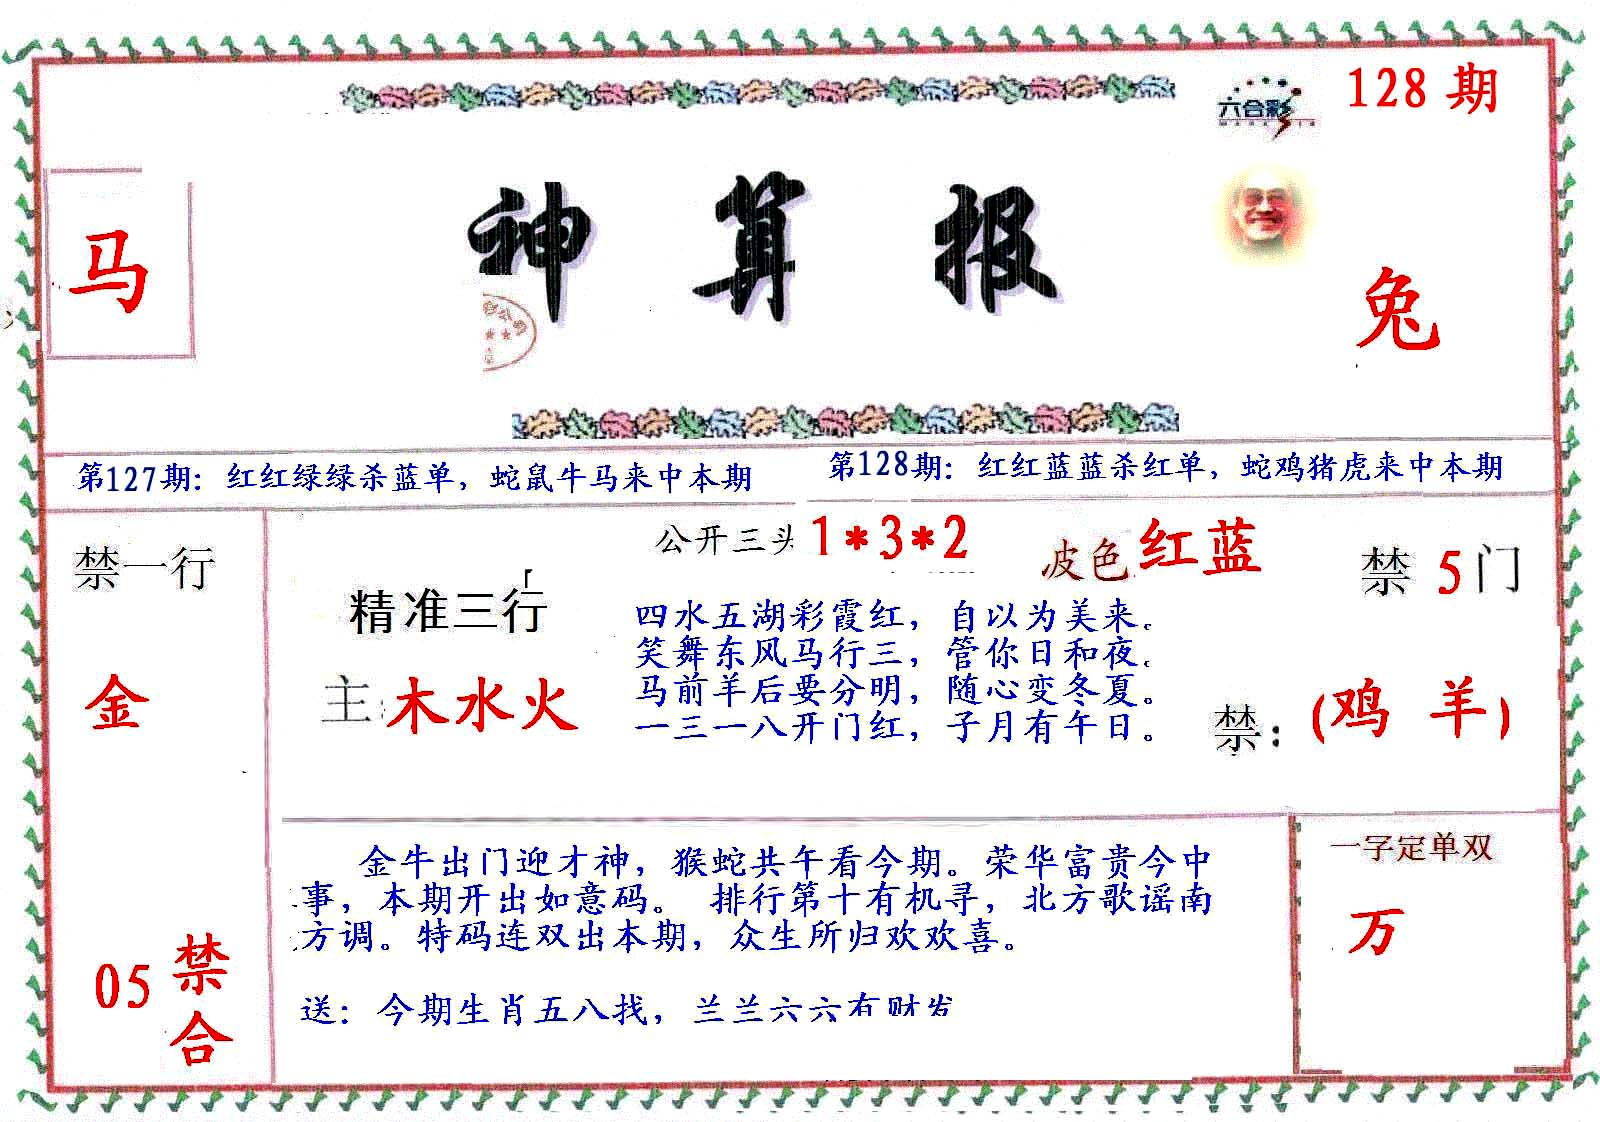 六合彩
128 期
马
神 算 报
兔
第127期：红红绿绿杀蓝单，蛇鼠牛马来中本期
第128期：红红蓝蓝杀红单，蛇鸡猪虎来中本期
禁一行
金
05 禁合
精准三行
主：木水火
公开三头 1*3*2
波色 红蓝
禁 5 门
四水五湖彩霞红，自以为美来。
笑舞东风马行三，管你日和夜。
马前羊后要分明，随心变冬夏。
一三一八开门红，子月有午日。
禁：(鸡 羊)
金牛出门迎才神，猴蛇共午看今期。荣华富贵今中
事，本期开出如意码。 排行第十有机寻，北方歌谣南
方调。特码连双出本期，众生所归欢欢喜。
送：今期生肖五八找，兰兰六六有财发
一字定单双
万